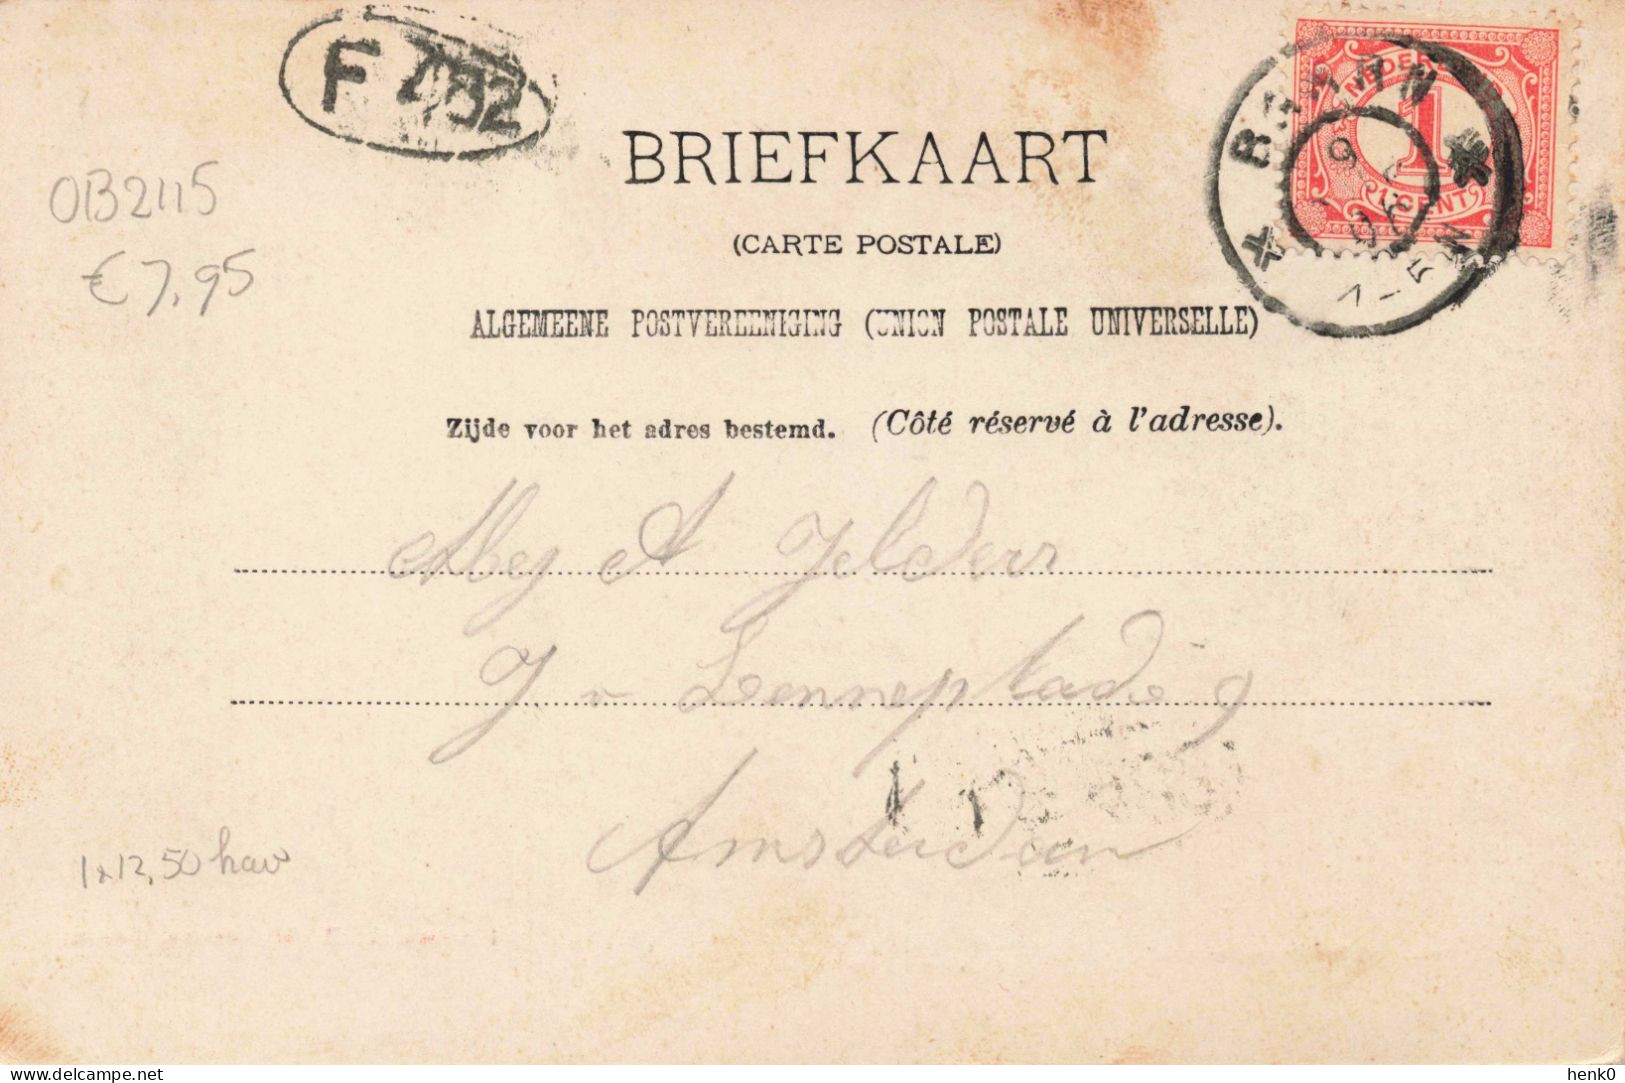 F 482
OB2115
€ 7,95
BRIEFKAART
(CARTE POSTALE)
ALGEMEENE POSTVEREENIGING (UNION POSTALE UNIVERSELLE)
Zijde voor het adres bestemd. (Côté réservé à l'adresse).
NEDERL
1
1 CENT
BAARN
A Jelders
J v Lennepkade 9
Amsterdam
1 x 12,50 hav
© delcampe.net
henk0